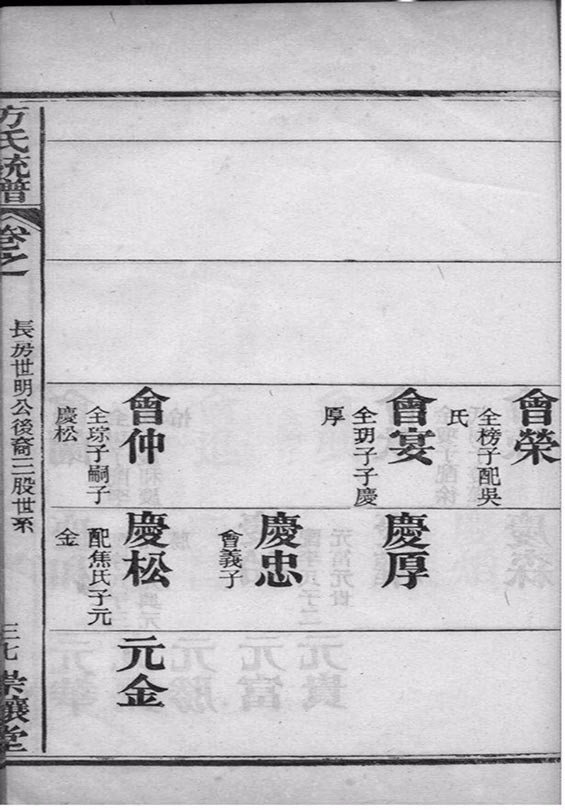 會榮
全榜子配吳
氏
會宴
全玥子子慶
厚
會仲
全琮子嗣子
慶松
慶厚
慶忠
會義子
慶松
配焦氏子元
金
元金
方氏統譜
卷之
長房世明公後裔二股世系
三七